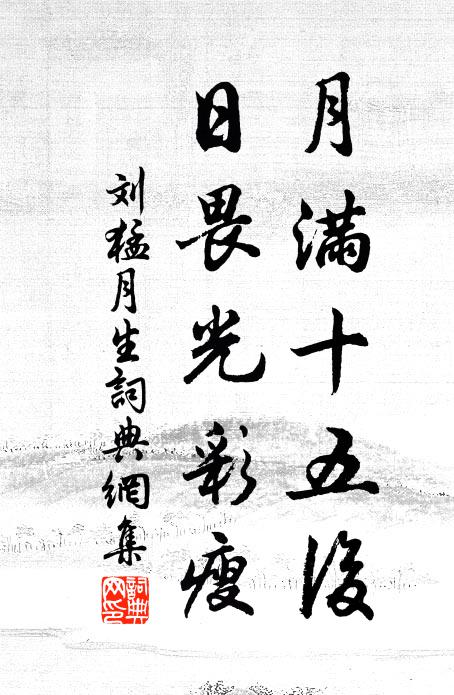 月滿十五後
日畏光彩瘦
刘猛月生詞典網集
詞典網印